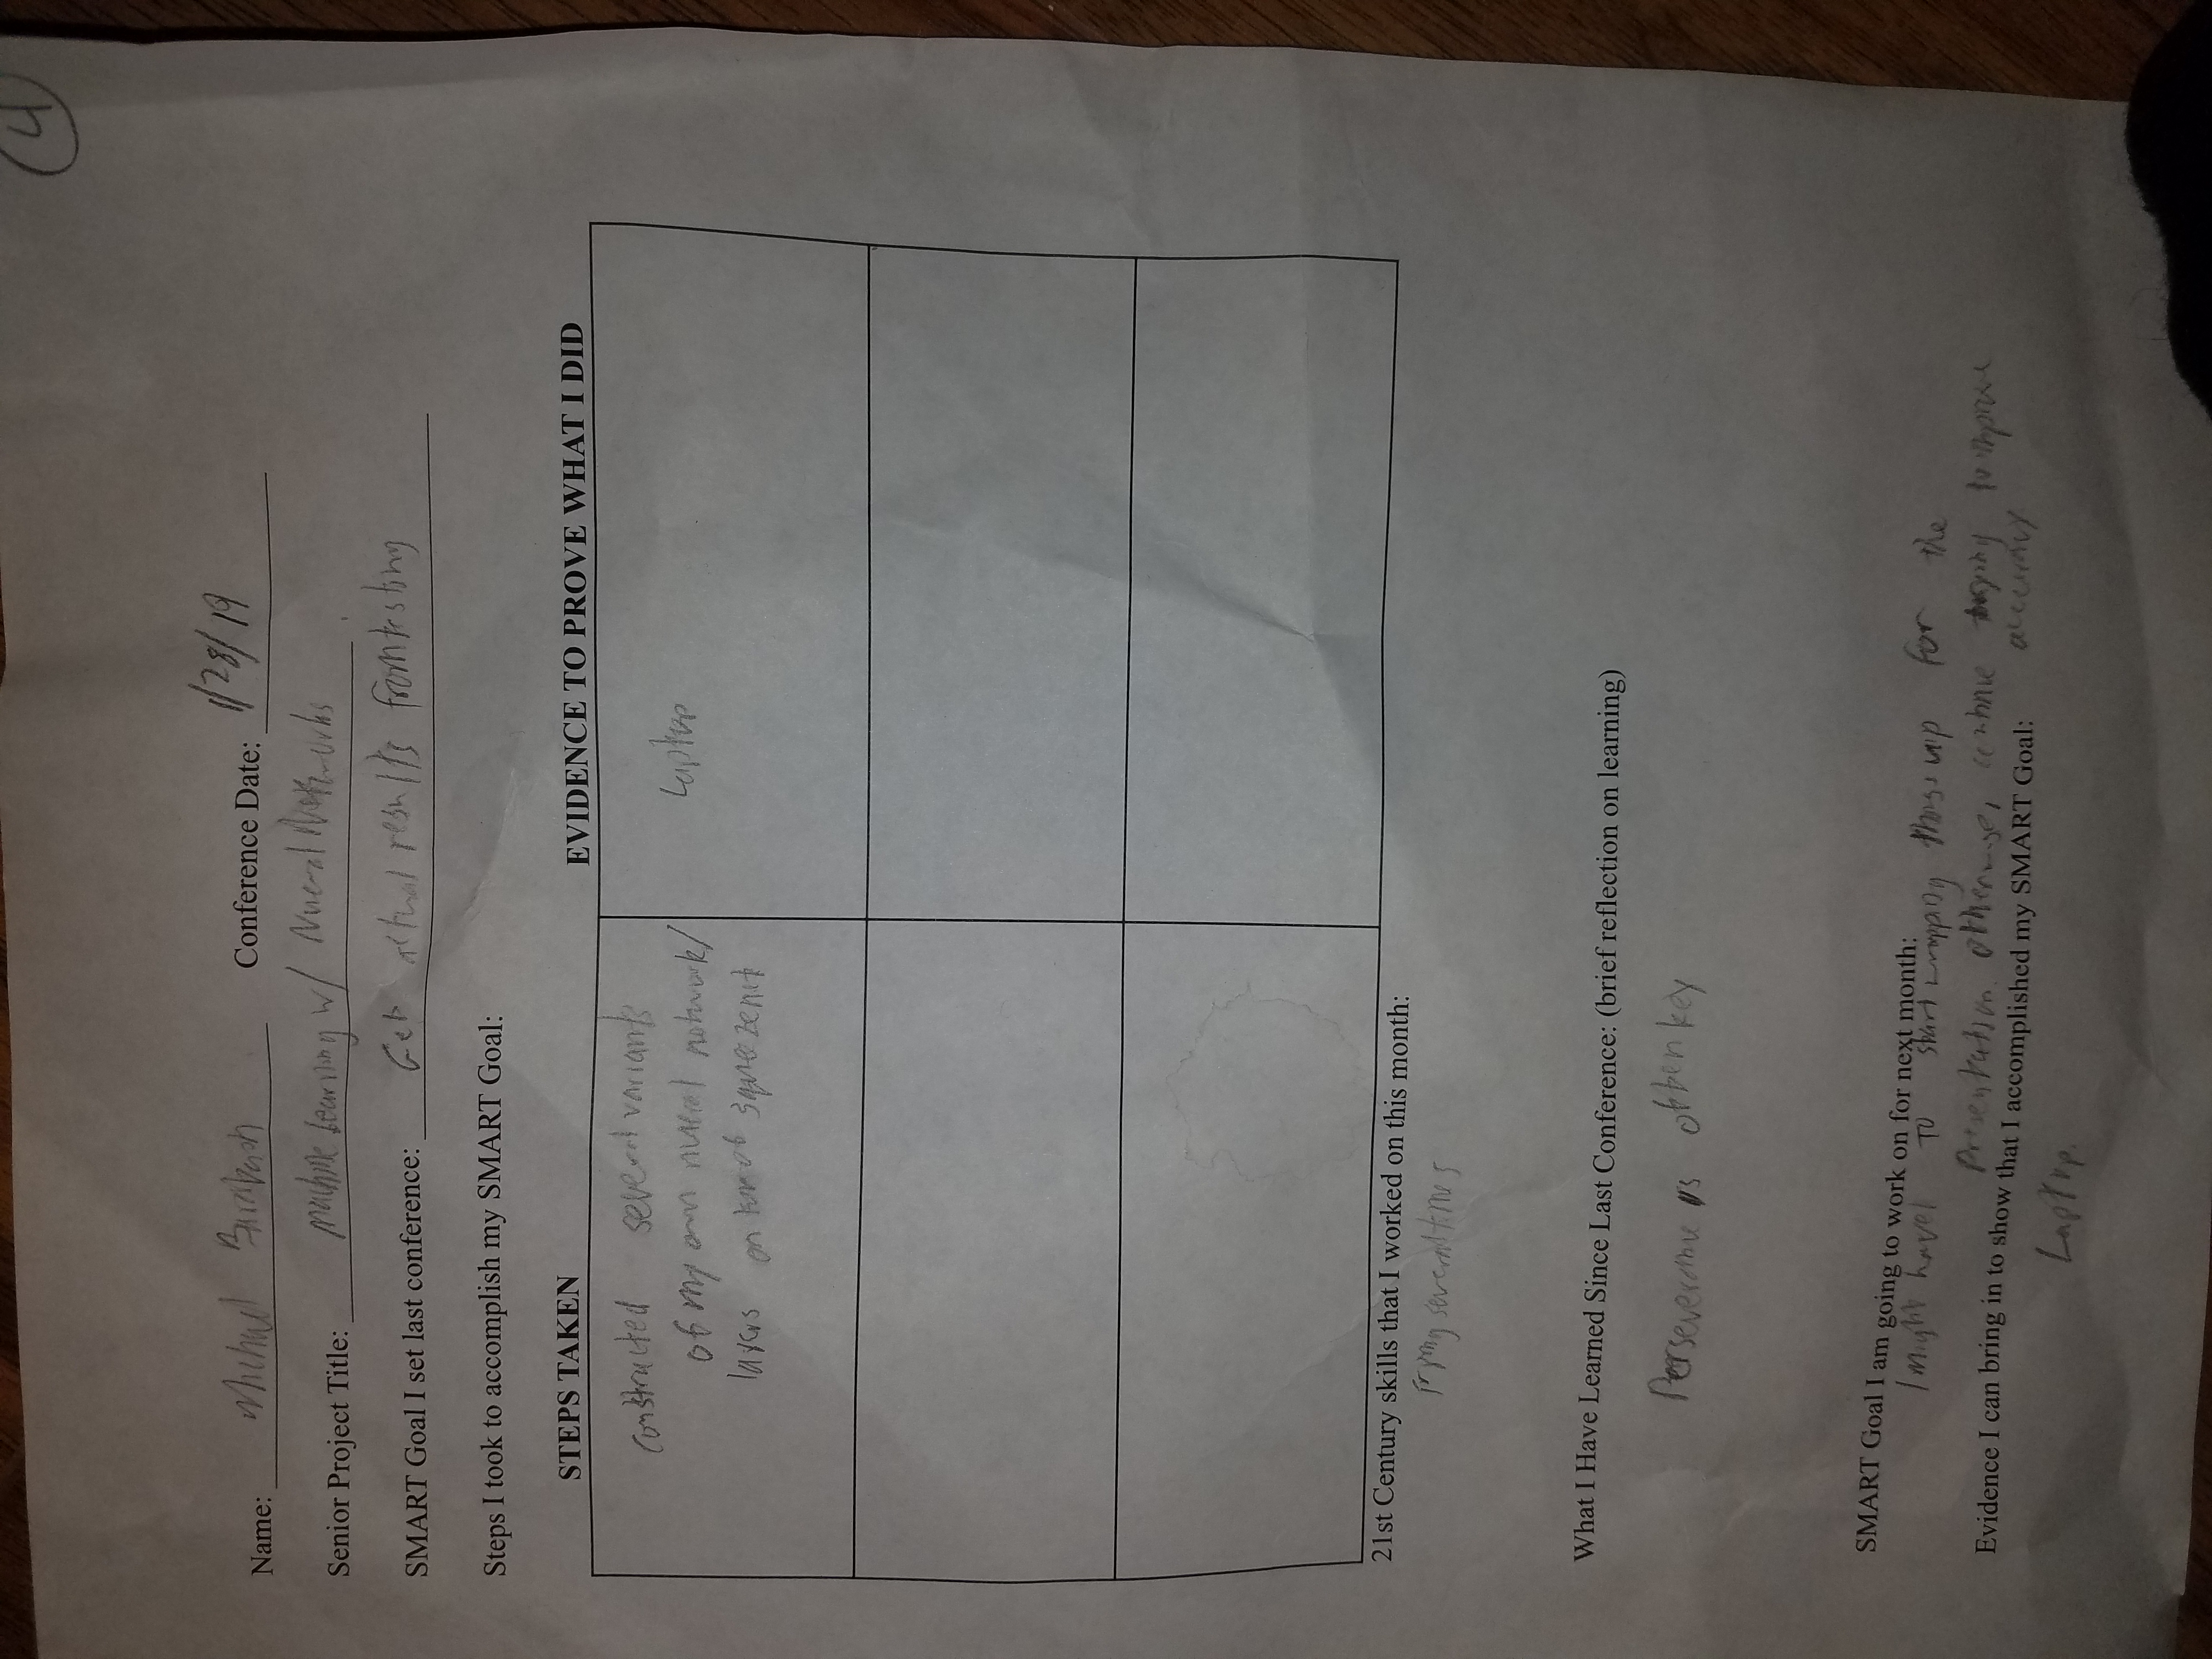 4
Name: Michael Conference Date: 1/28/19
Senior Project Title: Machine Learning w/ Nueral Networks
SMART Goal I set last conference: Get actual results from testing
Steps I took to accomplish my SMART Goal:
STEPS TAKEN EVIDENCE TO PROVE WHAT I DID
constructed several variants Laptop
of my own nueral network/
layers on top of squeezenet
21st Century skills that I worked on this month:
Trying several times
What I Have Learned Since Last Conference: (brief reflection on learning)
Perseverance is often key
SMART Goal I am going to work on for next month:
I might have to start wrapping things up for the
Presentation. otherwise, continue trying to improve
accuracy
Evidence I can bring in to show that I accomplished my SMART Goal:
Laptop.